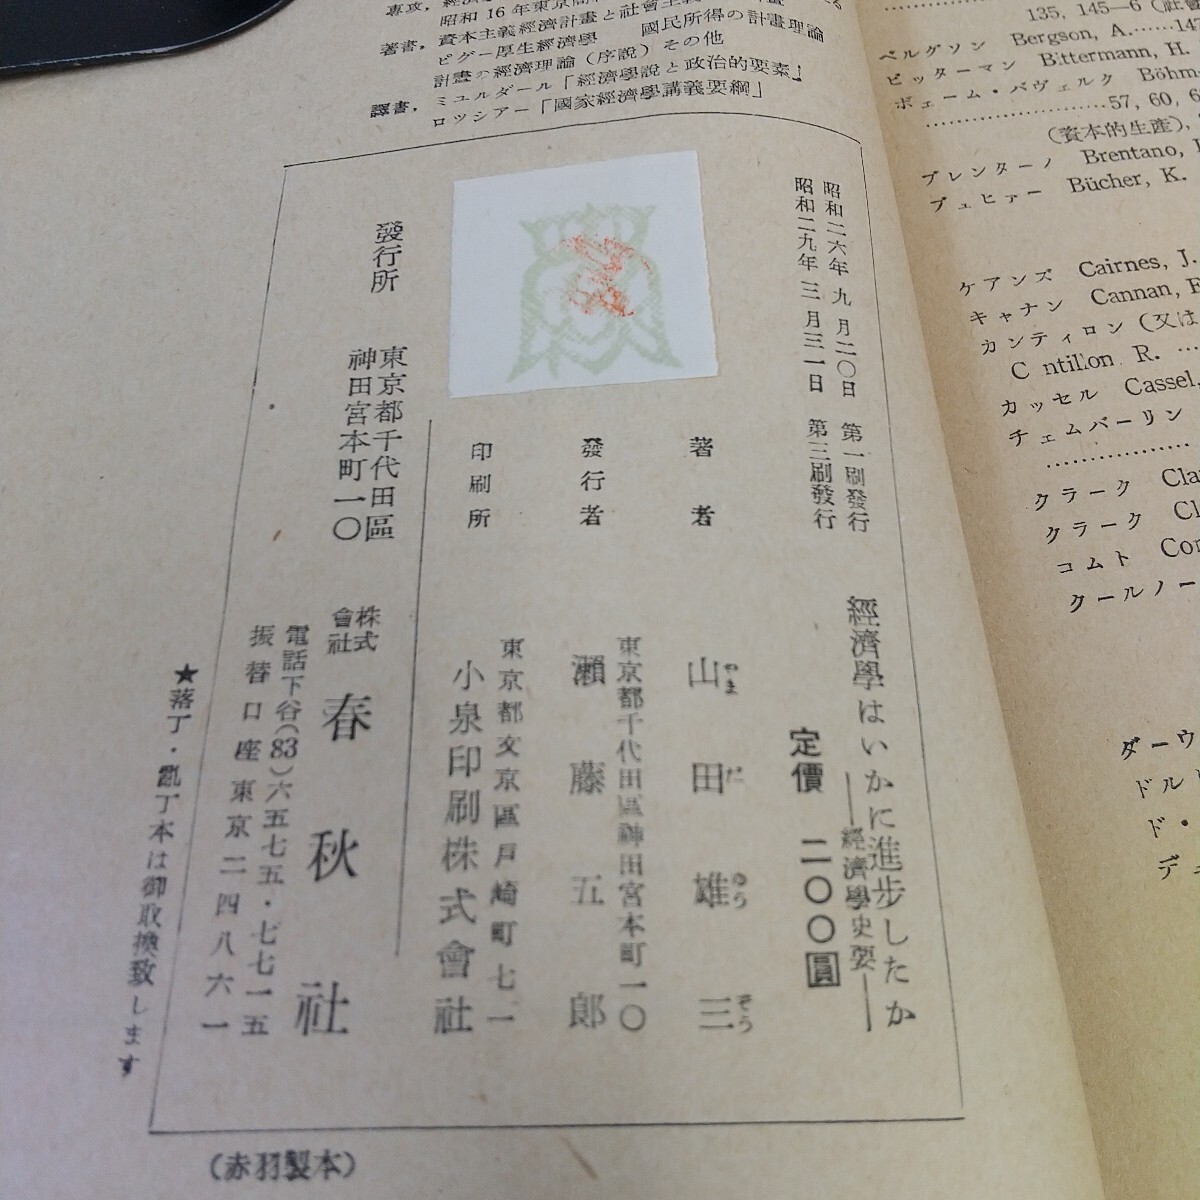 昭和16年東京商
著書，資本主義經濟計畫と社會主義
ピグー厚生經濟學　國民所得の計畫理論
計畫の經濟理論（序説）その他
譯書，ミュルダール「經濟學説と政治的要素」
ロツシアー「國家經濟學講義要綱」
昭和二六年九月二〇日　第一刷發行
昭和二九年三月三一日　第三刷發行
經濟學はいかに進歩したか
――經濟學史要――
定價　二〇〇圓
著者　山田雄三
やまだゆうぞう
東京都千代田區神田宮本町一〇
發行者　瀬藤五郎
東京都文京區戸崎町七一
印刷所　小泉印刷株式會社
發行所
東京都千代田區
神田宮本町一〇
株式會社　春秋社
電話下谷(83)六五七五・七七一五
振替口座東京二四八六一
★落丁・亂丁本は御取換致します
（赤羽製本）
135, 145—6
ベルグソン　Bergson, A.……147
ビッターマン　Bittermann, H.
ボェーム・バヴェルク　Böhm
……………………57, 60, 6
（資本的生産），
ブレンターノ　Brentano,
ブュヒァー　Bücher, K.
ケアンズ　Cairnes, J.
キャナン　Cannan, E
カンティロン（又は
C ntillon R. …
カッセル　Cassel,
チェムバーリン
クラーク　Cla
クラーク　Cl
コムト　Com
クールノー
ダーウ
ドル
ド・
デュ